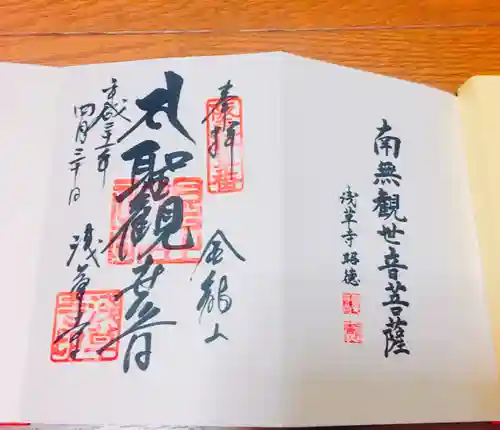 南無觀世音菩薩
浅草寺昭徳
奉拝
金龍山
聖觀世音
平成三十一年
四月三十日
浅草寺